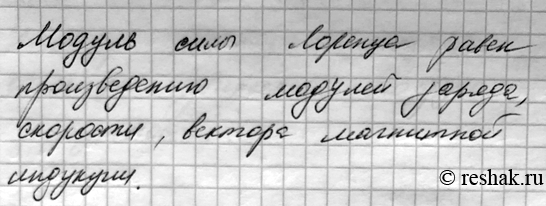 Модуль силы Лоренца равен
произведению модулей заряда,
скорости, вектора магнитной
индукции.
© reshak.ru